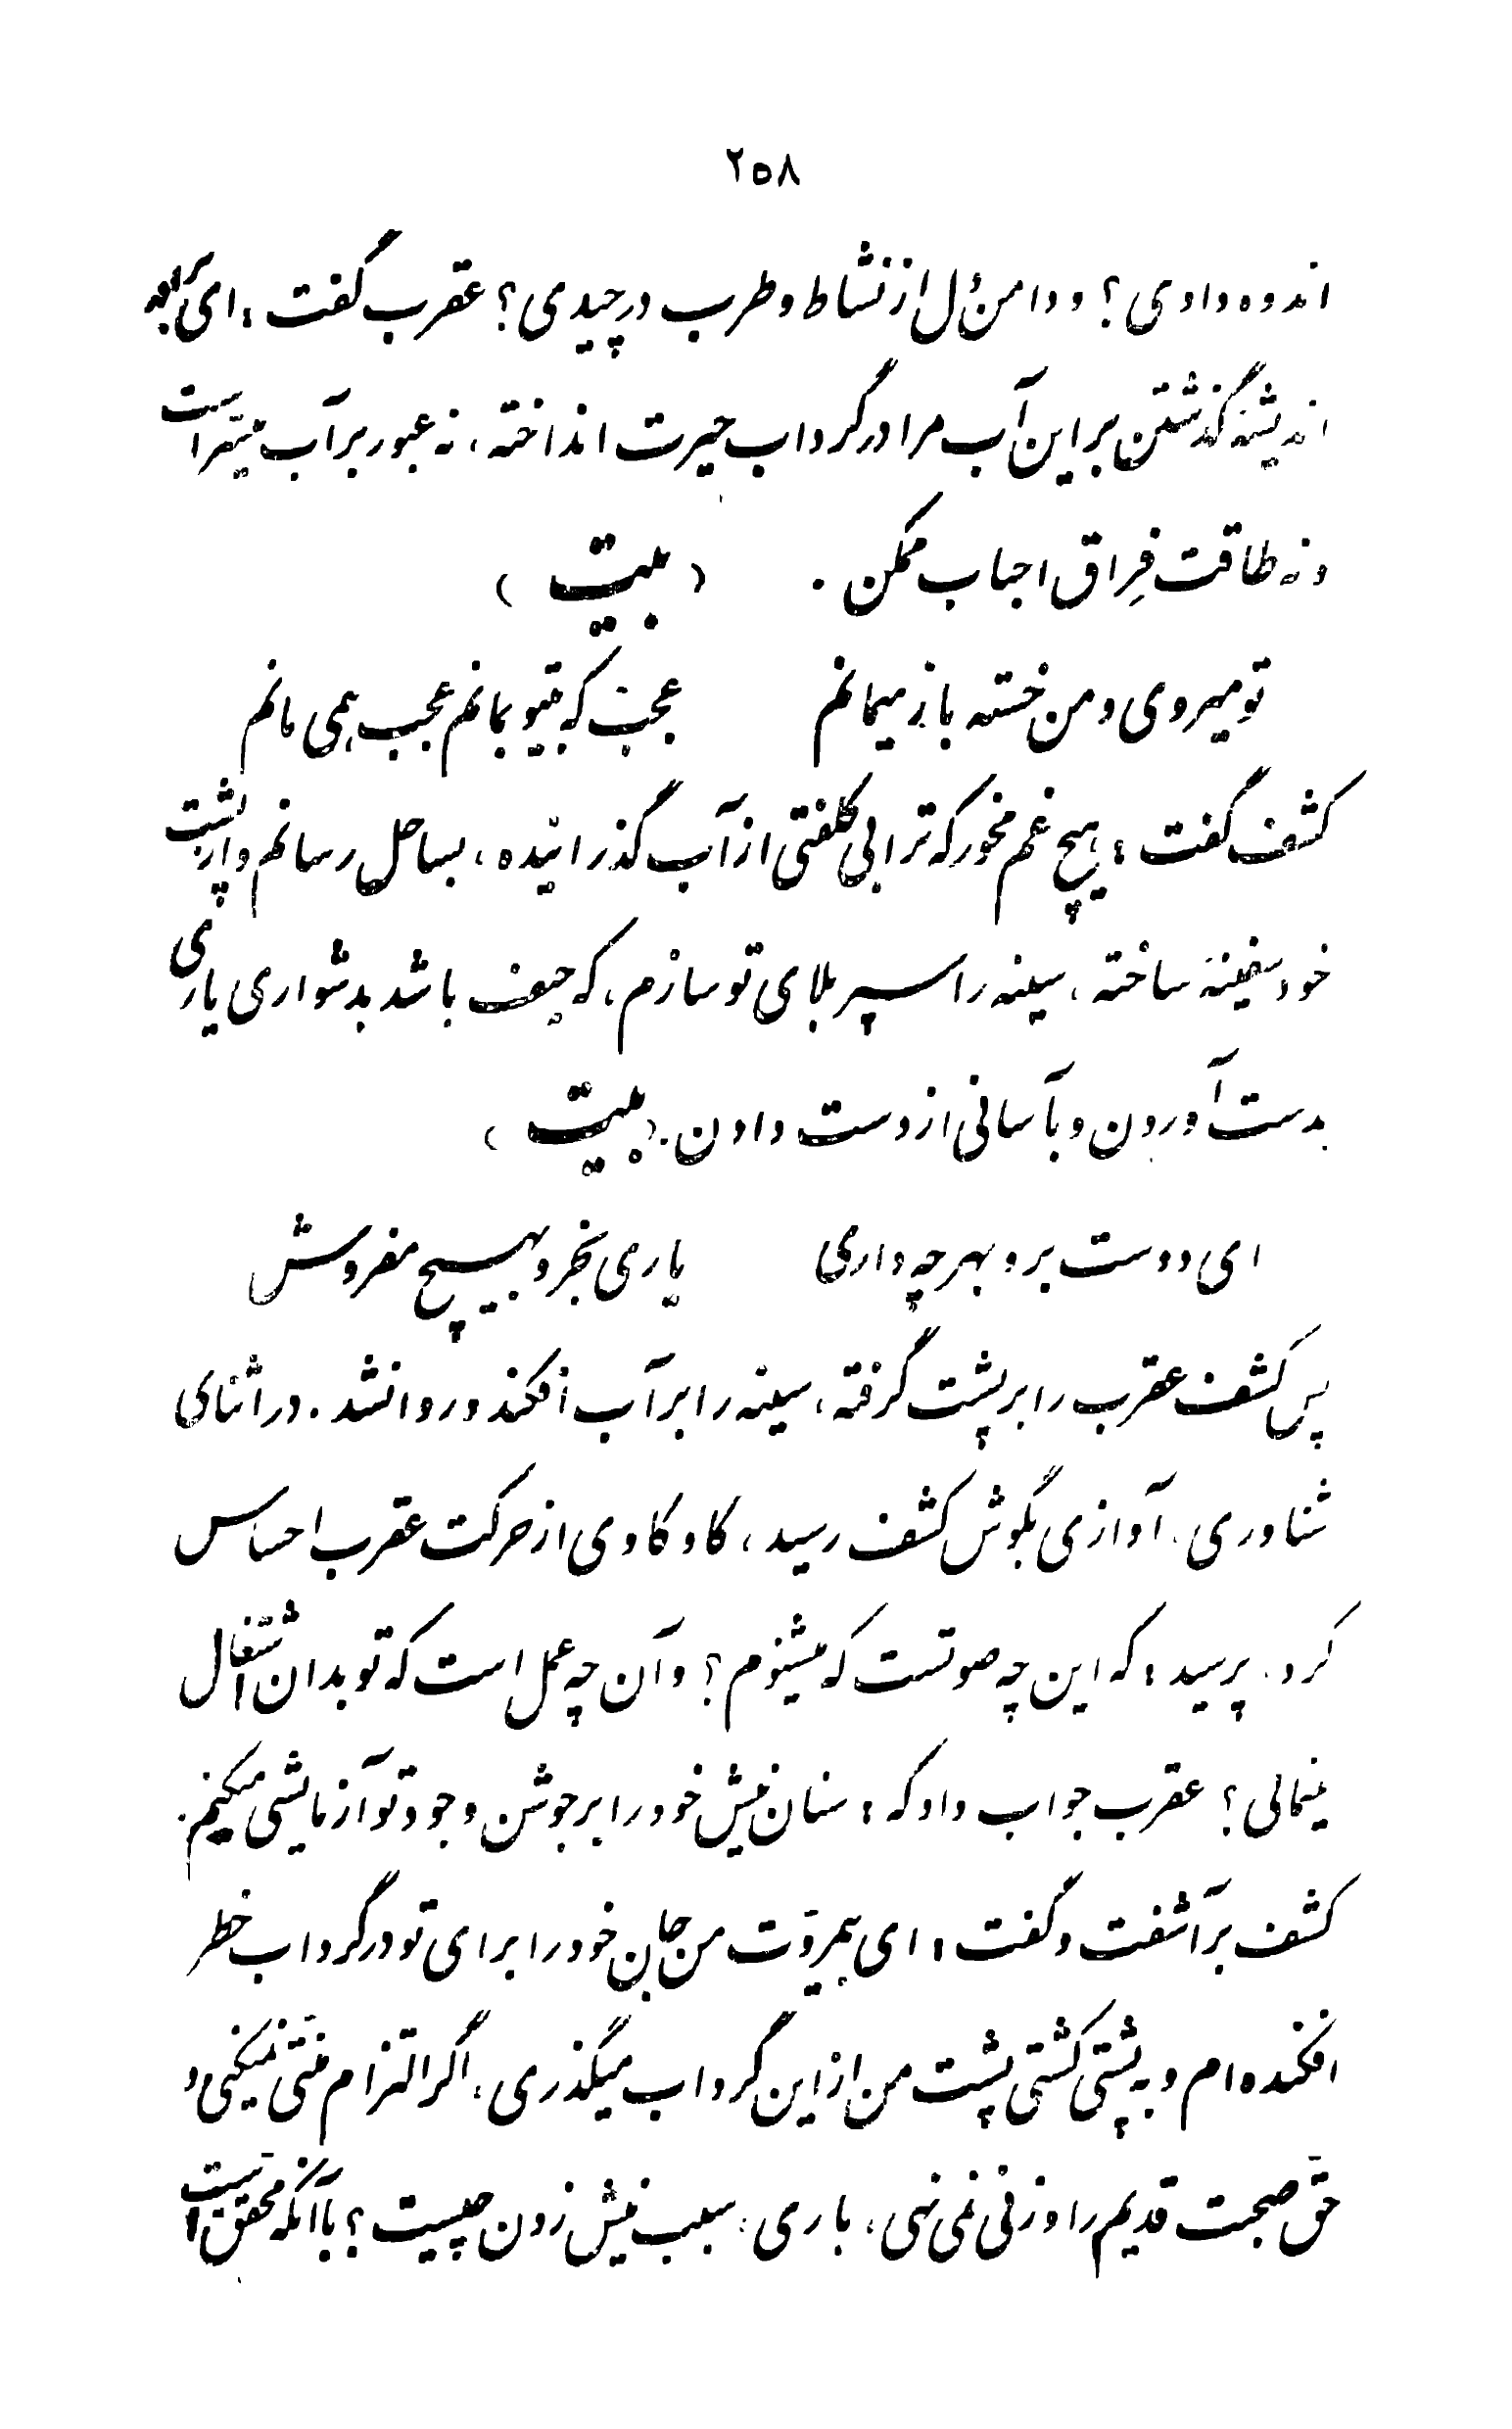 ۲۵۸
اندوه دادی؟ و دامن دل از نشاط و طرب درچیدی؟ عقرب گفت: ای برادر
اندیشهٔ گذشتن بر این آب مرا در گرداب حیرت انداخته، نه عبور بر آب میسّر است
و نه طاقت فِراق احباب ممکن. (بیت)
تو میروی و من خسته باز میمانم عجبست که بیتو بمانم عجب همی مانم
کشف گفت: هیچ غم مخور که ترا بی کلفتی از آب گذرانیده، بساحل رسانم و از پشت
خود سفینهٔ ساخته، سینه را سپر بلای تو سازم، که حیف باشد بدشواری یاری
بدست آوردن و بآسانی از دست دادن. (بیت)
ای دوست برو بهر چه داری یاری بخر و بهیچ مفروش
پس کشف عقرب را بر پشت گرفته، سینه را بر آب افکند و روانشد. در اثنای
شناوری، آوازی بگوش کشف رسید، کاوکاوی از حرکت عقرب احساس
کرد. پرسید: که این چه صوتست که میشنوم؟ و آن چه عمل است که تو بدان اشتغال
مینمائی؟ عقرب جواب داد که: سنان نیش خود را بر جوشن وجود تو آزمایشی میکنم.
کشف برآشفت و گفت: ای بیمروّت من جان خود را برای تو در گرداب خطر
افکنده‌ام و به پشتی کشتی پشت من از این گرداب میگذری، اگر التزام منّتی نمیکنی و
حقّ صحبت قدیم را وزنی نمی نهی، باری، سبب نیش زدن چیست؟ با آنکه محقق است